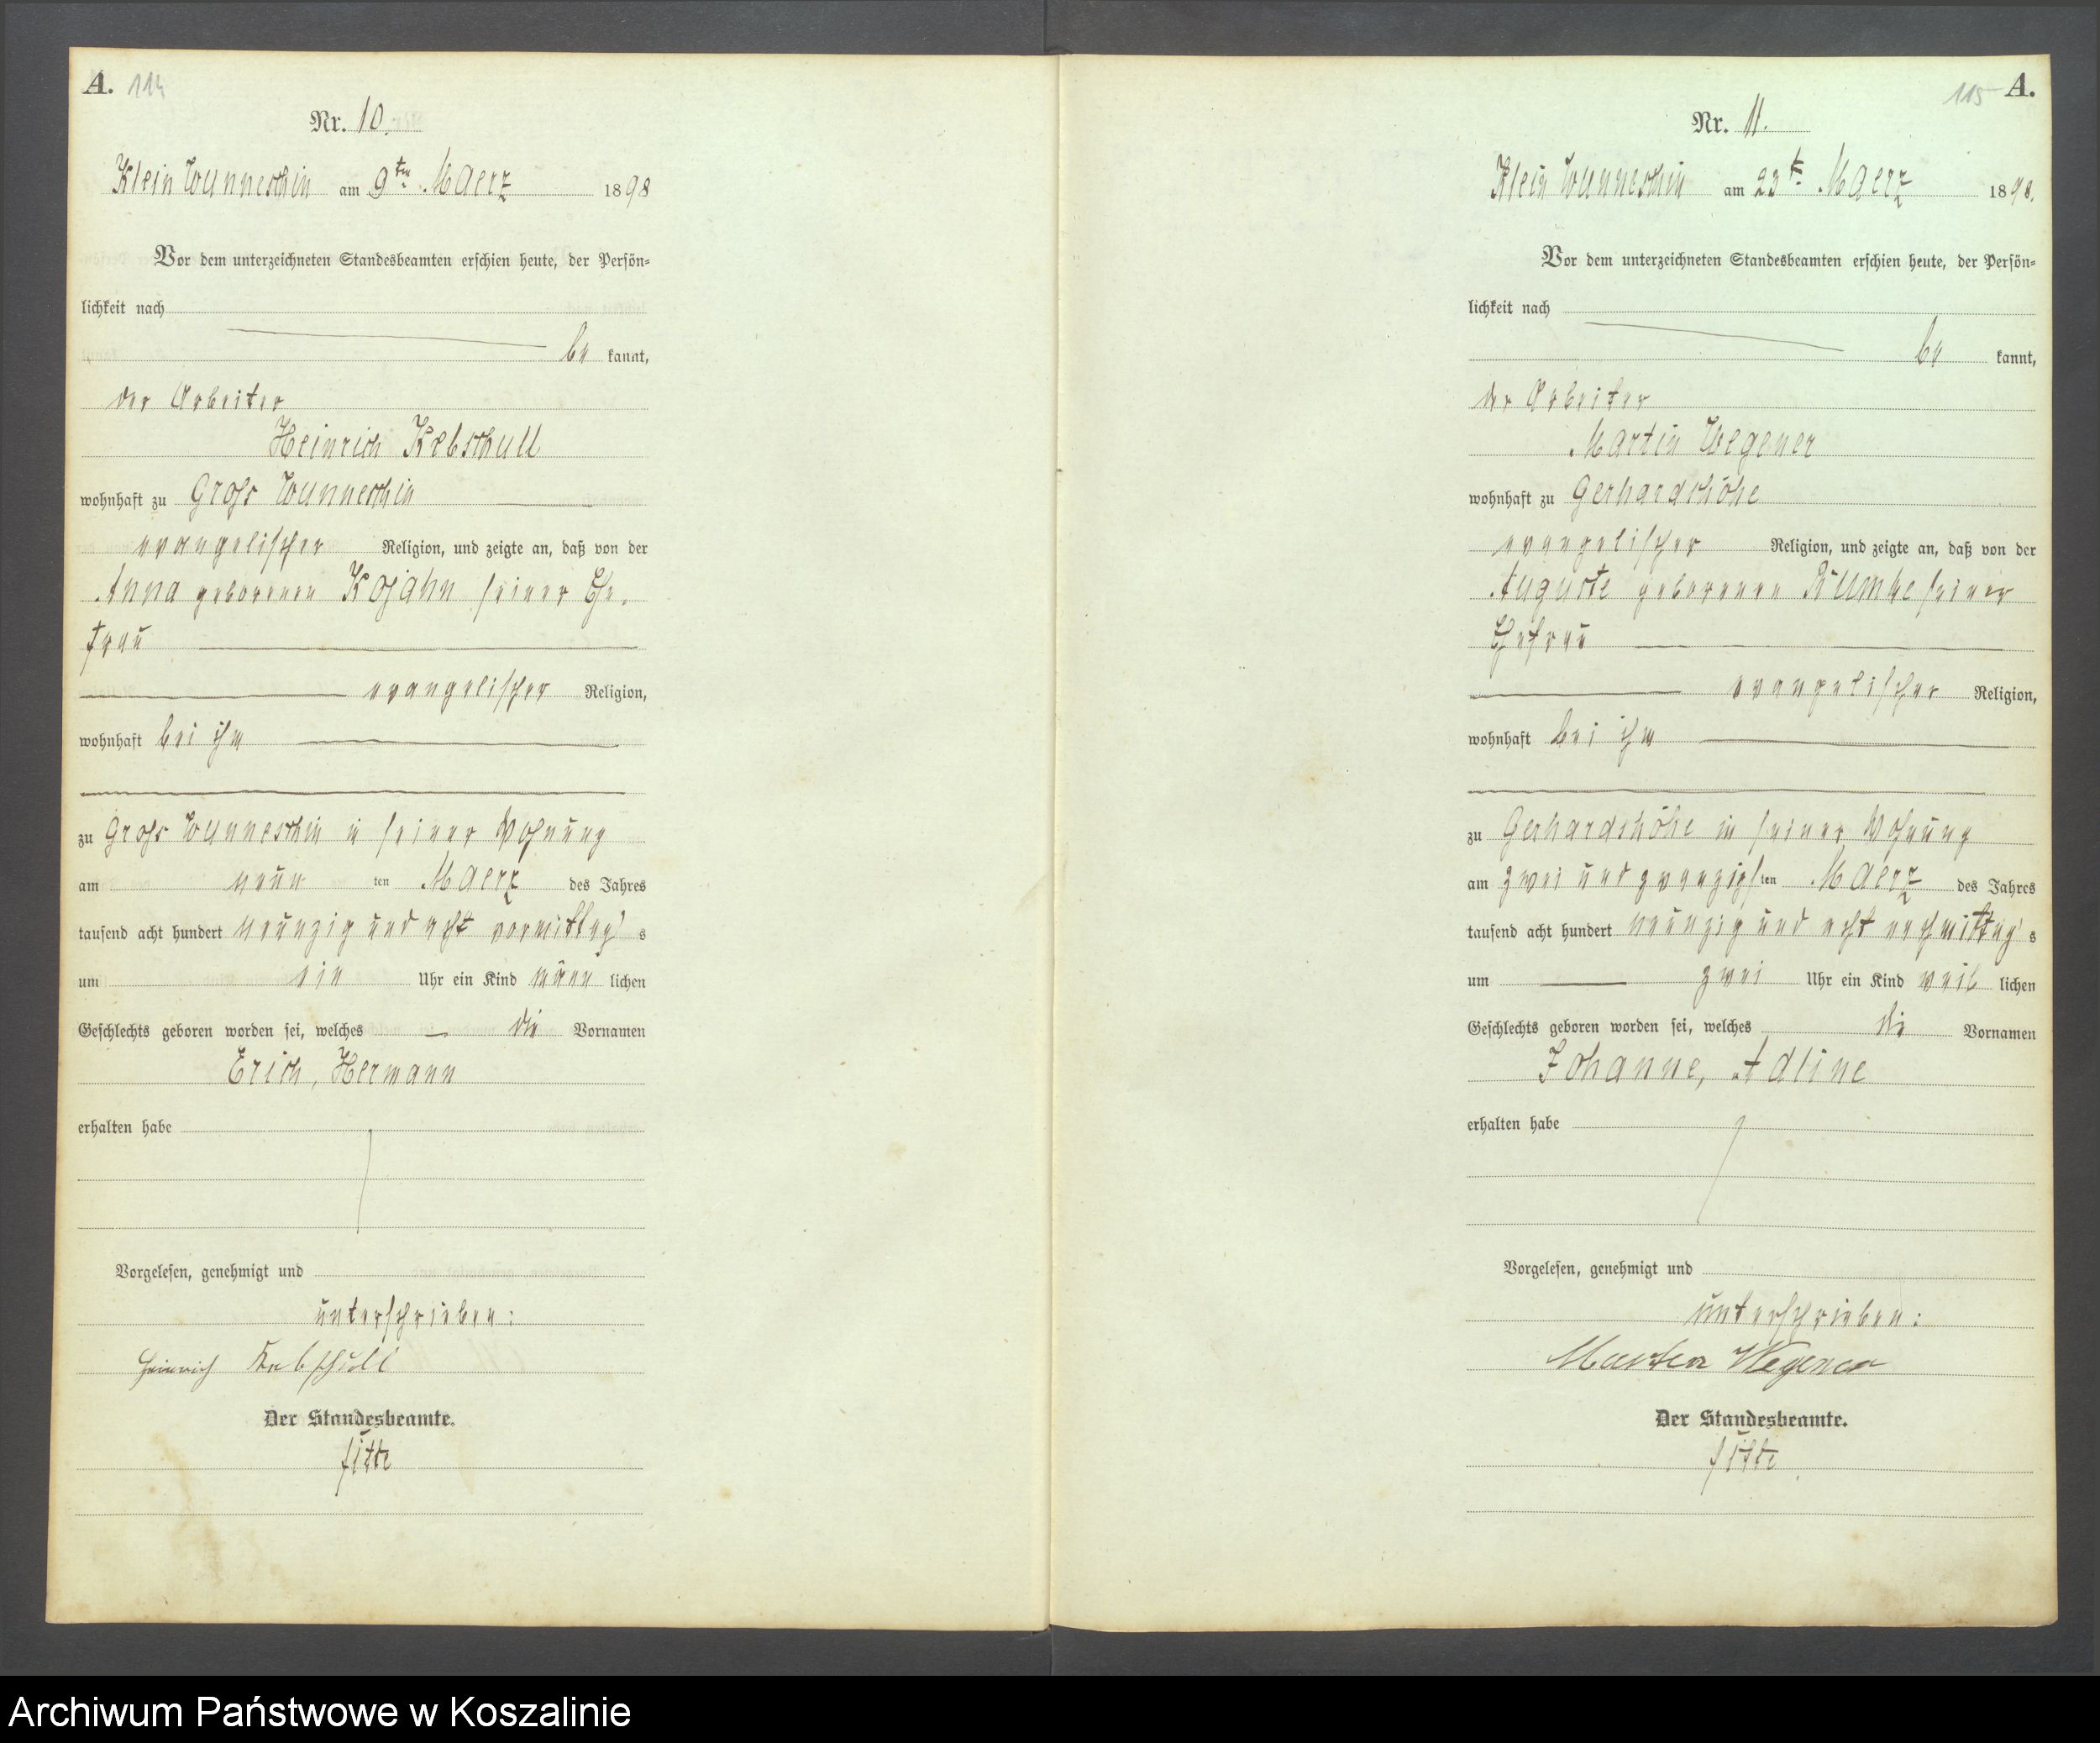 A. 114
Nr. 10.
Klein Wunneschin am 9ten Maerz 1898
Vor dem unterzeichneten Standesbeamten erschien heute, der Persön=
lichkeit nach
be kannt,
der Arbeiter
Heinrich Kebschull
wohnhaft zu Gross Wunneschin
evangelischer Religion, und zeigte an, daß von der
Anna geborenen Kojahn seiner Ehe-
frau
evangelischer Religion,
wohnhaft bei ihm
zu Gross Wunneschin in seiner Wohnung
am neun ten Maerz des Jahres
tausend acht hundert neunzig und acht vormittag s
um ein Uhr ein Kind männ lichen
Geschlechts geboren worden sei, welches die Vornamen
Erich, Hermann
erhalten habe
Vorgelesen, genehmigt und
unterschrieben:
Heinrich Kebschull
Der Standesbeamte.
115 A.
Nr. 11.
Klein Wunneschin am 23t Maerz 1898.
Vor dem unterzeichneten Standesbeamten erschien heute, der Persön=
lichkeit nach
be kannt,
der Arbeiter
Martin Wegener
wohnhaft zu Gerhardshöhe
evangelischer Religion, und zeigte an, daß von der
Auguste geborenen Rumke seiner
Ehefrau
evangelischer Religion,
wohnhaft bei ihm
zu Gerhardshöhe in seiner Wohnung
am zwei und zwanzigs ten Maerz des Jahres
tausend acht hundert neunzig und acht nachmittag s
um zwei Uhr ein Kind weib lichen
Geschlechts geboren worden sei, welches die Vornamen
Johanne, Adline
erhalten habe
Vorgelesen, genehmigt und
unterschrieben:
Martin Wegener
Der Standesbeamte.
Archiwum Państwowe w Koszalinie